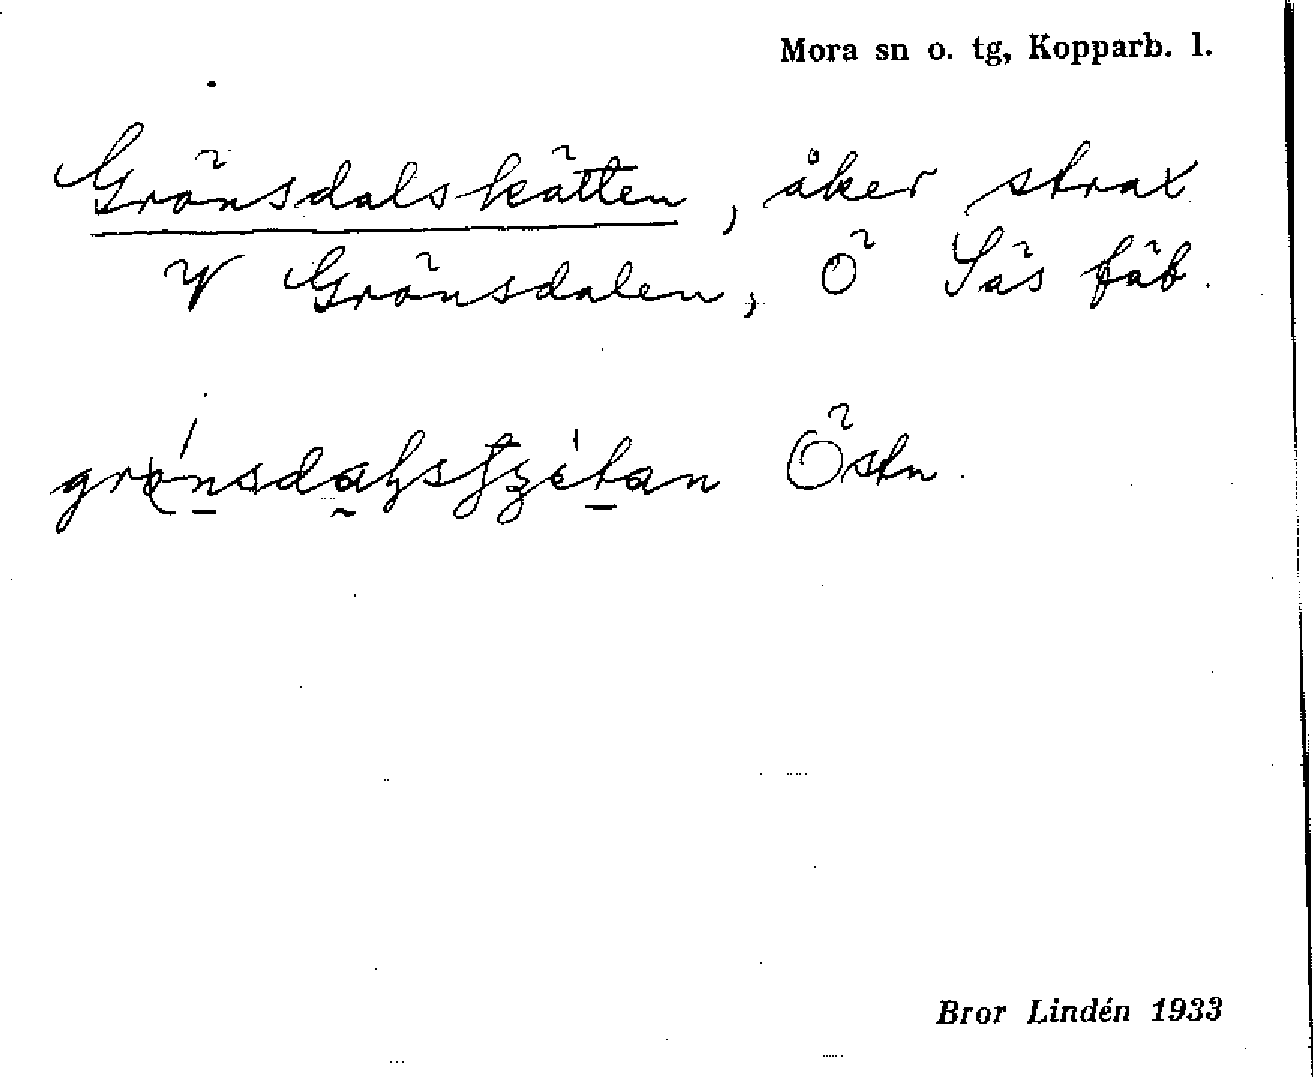 Mora sn o. tg, Kopparb. l.
Grönsdalskätten, åker strax
V Grönsdalen, Ö Säs fäb.
Östn.
Bror Lindén 1933